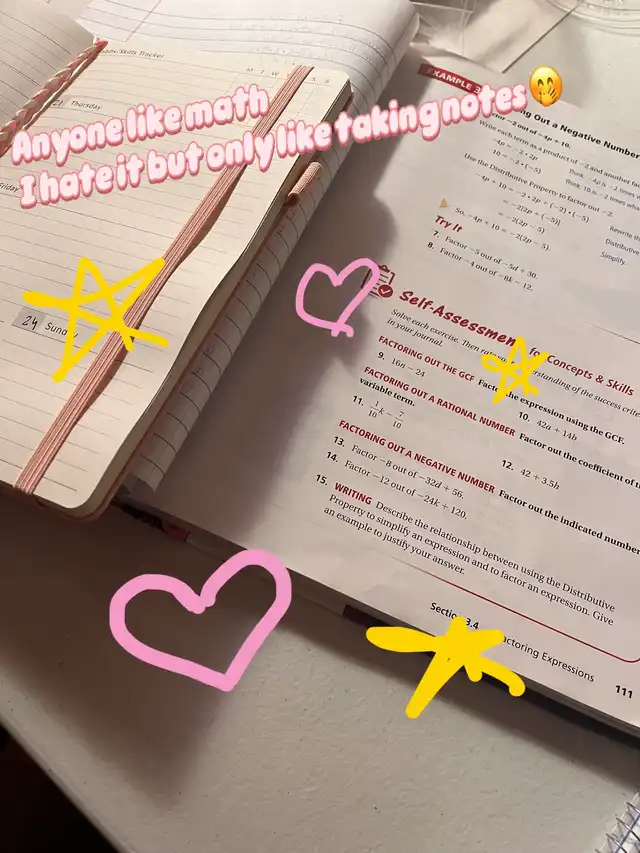 Anyone like math
I hate it but only like taking notes🤭
Skills Tracker
M T W
S
21 Thursday
Friday
24 Sunday
EXAMPLE 3
ng Out a Negative Number
or −2 out of −4p + 10.
Write each term as a product of −2 and another
−4p = −2 • 2p
Think: −4p is −2 times
10 = −2 • (−5)
Think: 10 is −2 times what
Use the Distributive Property to factor out −2.
−4p + 10 = −2 • 2p + (−2) • (−5)
Rewrite
= −2[2p + (−5)]
Distributive
= −2(2p − 5)
Simplify
So, −4p + 10 = −2(2p − 5).
Try It
7. Factor −5 out of −5d + 30.
8. Factor −4 out of −8k − 12.
Self-Assessment for Concepts & Skills
Solve each exercise. Then understanding of the success
in your journal.
FACTORING OUT THE GCF Factor the expression using the GCF.
9. 16n − 24
10. 42a + 14b
FACTORING OUT A RATIONAL NUMBER Factor out the coefficient of
variable term.
11. 1/10 k − 7/10
12. 42 + 3.5h
FACTORING OUT A NEGATIVE NUMBER Factor out the indicated number
13. Factor −8 out of −32d + 56.
14. Factor −12 out of −24k + 120.
15. WRITING Describe the relationship between using the Distributive
Property to simplify an expression and to factor an expression. Give
an example to justify your answer.
Section 3.4 Factoring Expressions 111